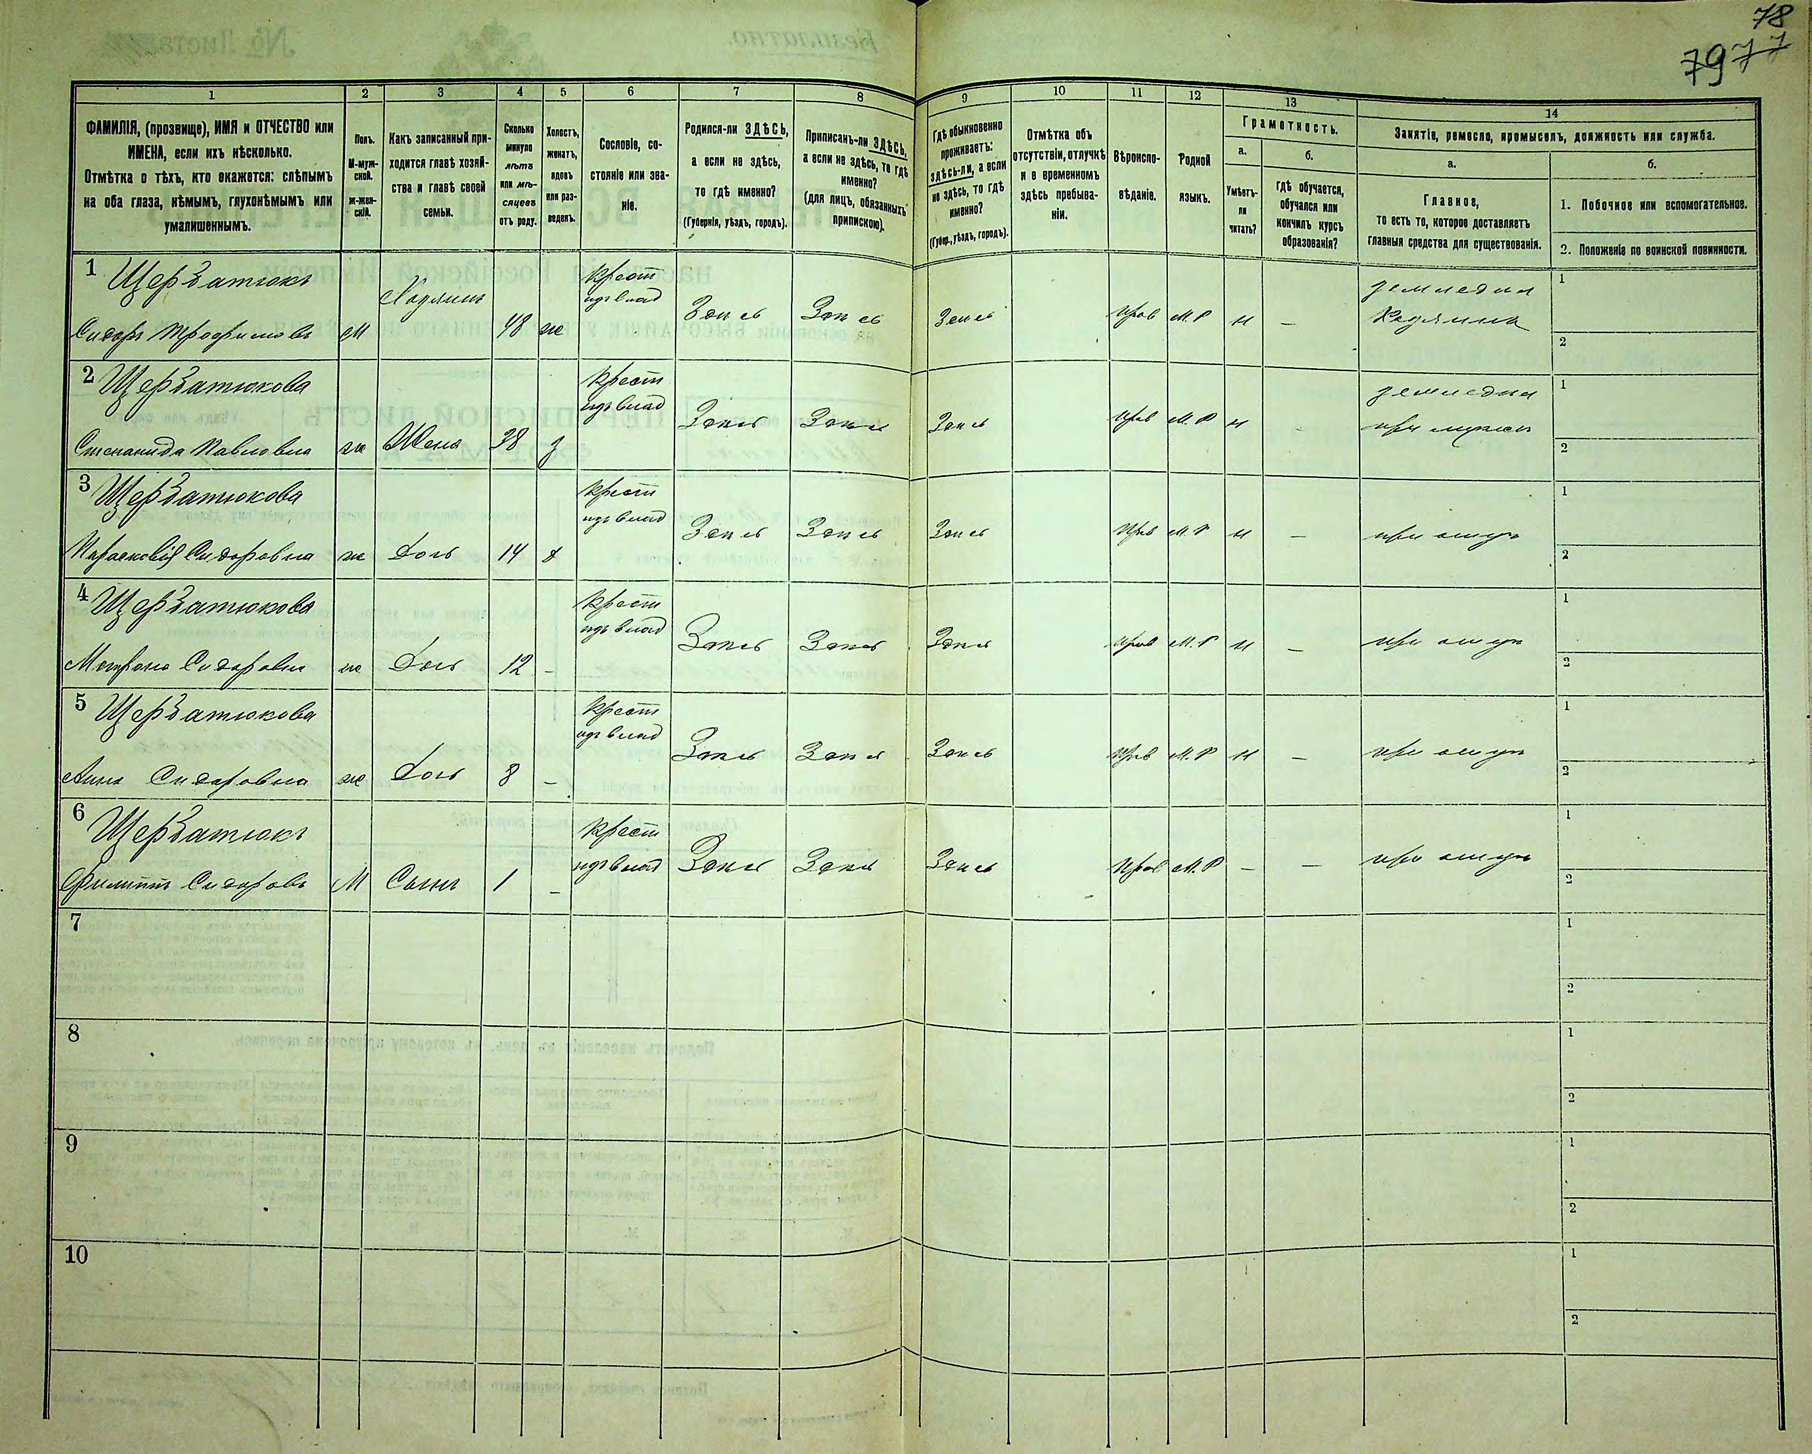 78
79 77
1 2 3 4 5 6 7 8 9 10 11 12 13 14
ФАМИЛІЯ, (прозвище), ИМЯ и ОТЧЕСТВО или
ИМЕНА, если ихъ нѣсколько.
Отмѣтка о тѣхъ, кто окажется: слѣпымъ
на оба глаза, нѣмымъ, глухонѣмымъ или
умалишеннымъ.
Полъ.
М-муж-
ской.
ж-жен-
скій.
Какъ записанный при-
ходится главѣ хозяй-
ства и главѣ своей
семьи.
Сколько
минуло
лѣтъ
или мѣ-
сяцевъ
отъ роду.
Холостъ,
женатъ,
вдовъ
или раз-
веденъ.
Сословіе, со-
стояніе или зва-
ніе.
Родился-ли ЗДѢСЬ,
а если не здѣсь,
то гдѣ именно?
(Губернія, уѣздъ, городъ).
Приписанъ-ли ЗДѢСЬ,
а если не здѣсь, то гдѣ
именно?
(для лицъ, обязанныхъ
припискою).
Гдѣ обыкновенно
проживаетъ:
здѣсь-ли, а если
не здѣсь, то гдѣ
именно?
(Губер., уѣздъ, городъ).
Отмѣтка объ
отсутствіи, отлучкѣ
и о временномъ
здѣсь пребыва-
ніи.
Вѣроиспо-
вѣданіе.
Родной
языкъ.
Грамотность.
а.
Умѣетъ-
ли
читать?
б.
Гдѣ обучается,
обучался или
кончилъ курсъ
образованія?
Занятіе, ремесло, промыселъ, должность или служба.
а.
Главное,
то есть то, которое доставляетъ
главныя средства для существованія.
б.
1. Побочное или вспомогательное.
2. Положеніе по воинской повинности.
1 Щербатюкъ Хозяинъ крест земледел 1
Сидоръ Трофимовъ М 48 ж Здесь Здесь Здесь Прав М.Р н — Хозяинъ 2
2 Щербатюкова крест земледел 1
Степанида Павловна ж Жена 38 з Здесь Здесь Здесь Прав М.Р н при мужи 2
3 Щербатюкова крест 1
Парасковія Сидоровна ж Дочь 14 Здесь Здесь Здесь Прав М.Р н — при отцу 2
4 Щербатюкова крест 1
Матрона Сидоровна ж Дочь 12 — Здесь Здесь Здесь Прав М.Р н — при отцу 2
5 Щербатюкова крест 1
Анна Сидоровна ж Дочь 8 — Здесь Здесь Здесь Прав М.Р н — при отцу 2
6 Щербатюкъ крест 1
Филиппъ Сидоровъ М Сынъ 1 — Здесь Здесь Здесь Прав М.Р — — при отцу 2
7 1
2
8 1
2
9 1
2
10 1
2